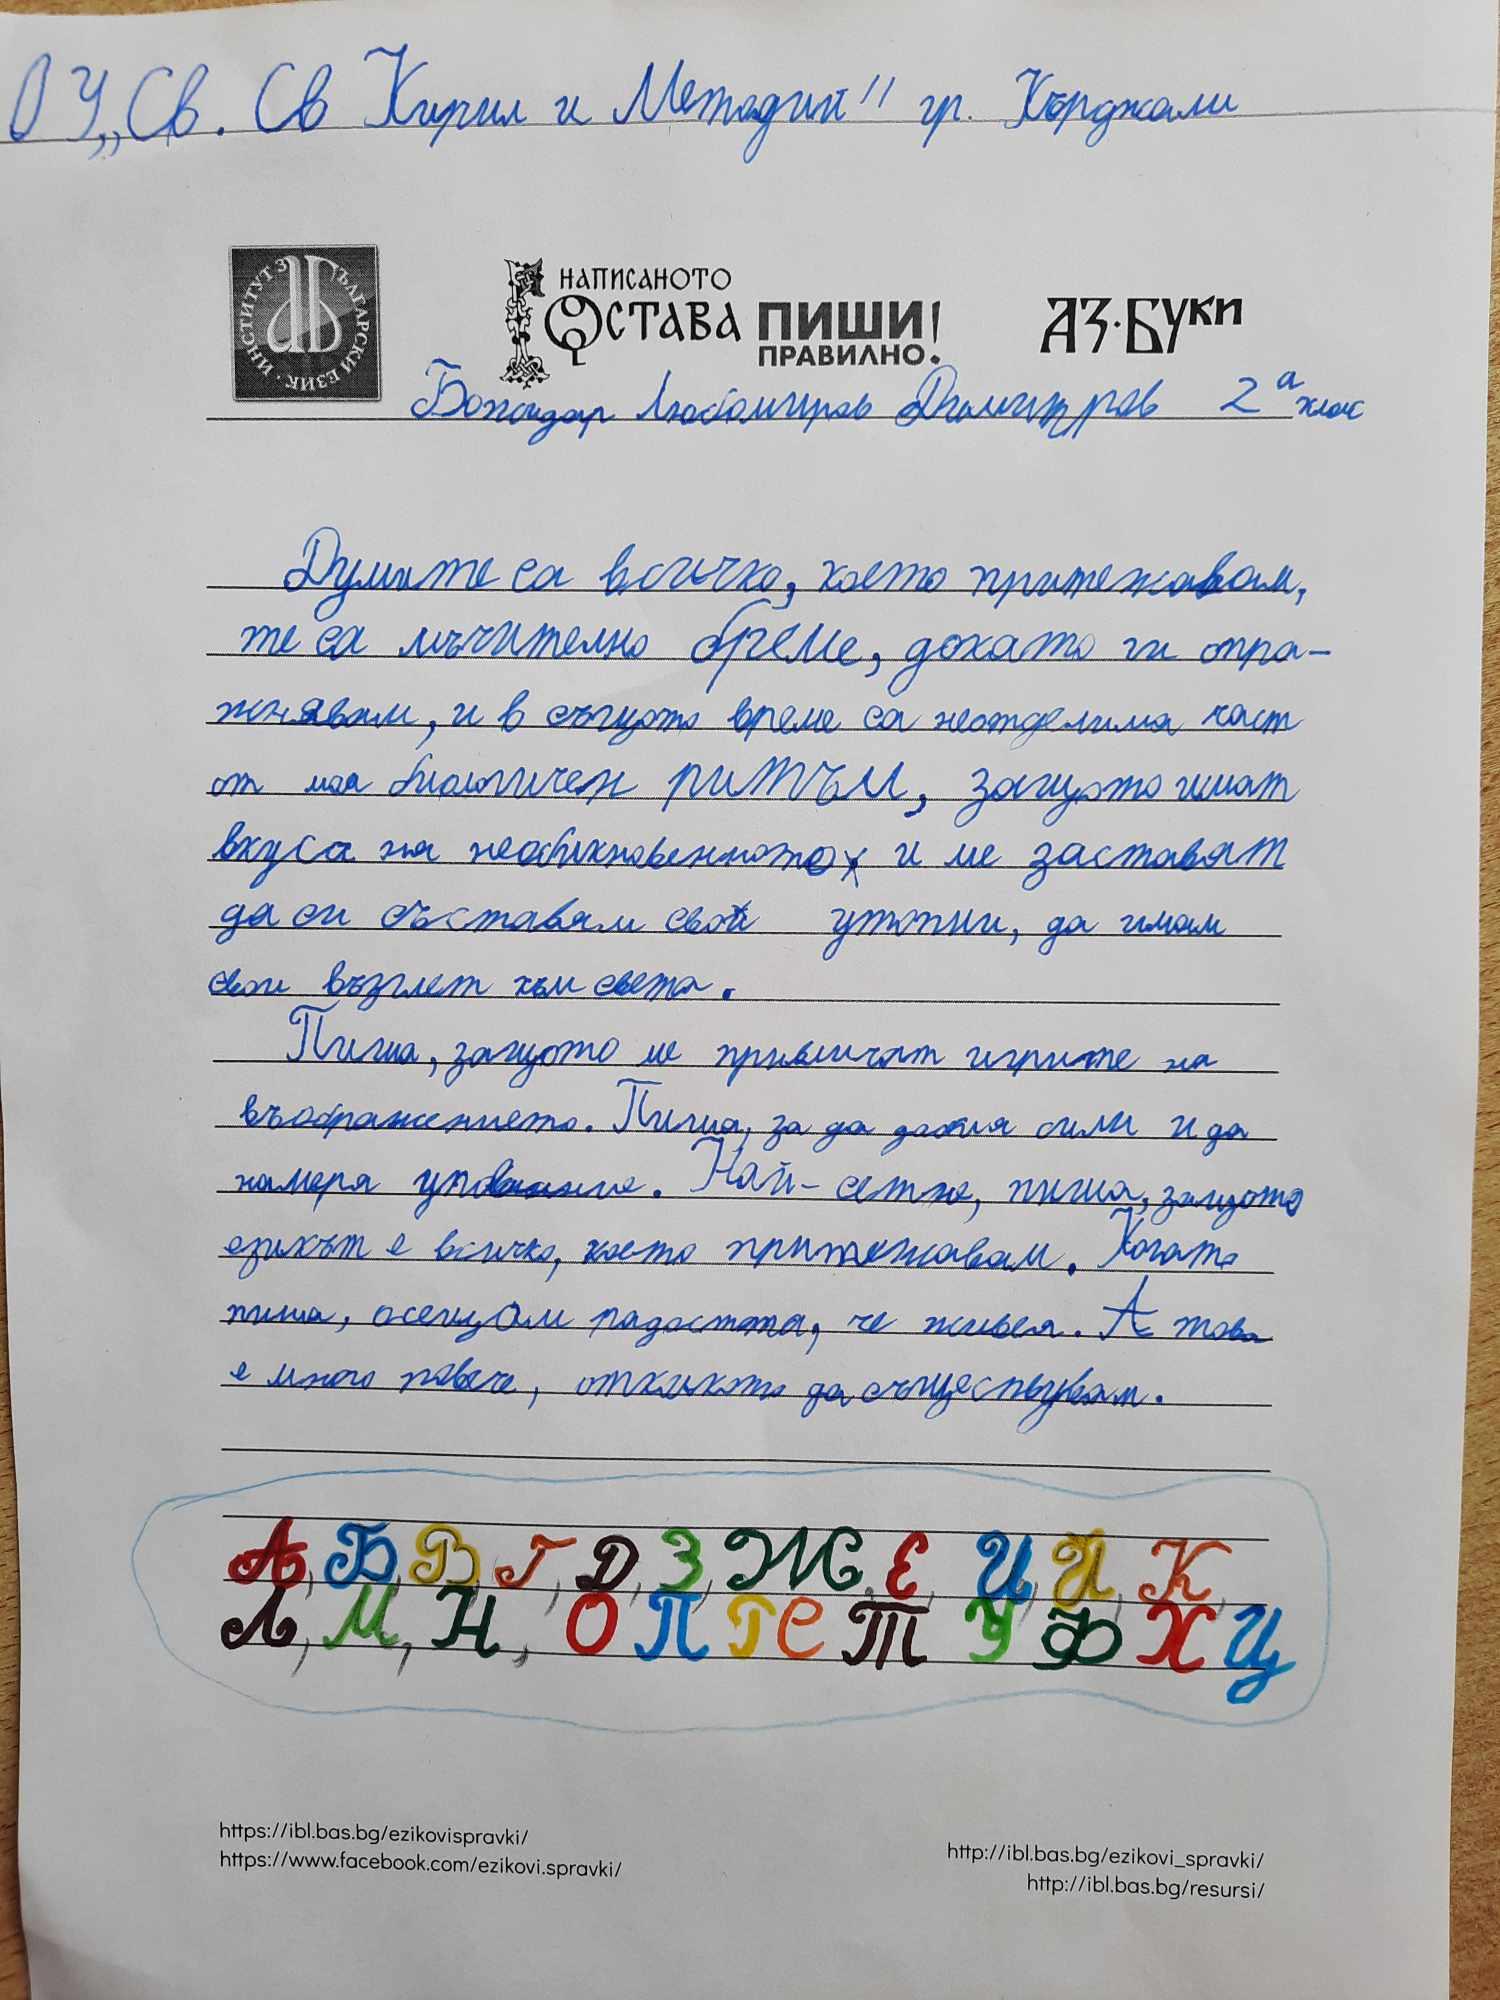 ОУ „Св. Св Кирил и Методий" гр. Кърджали
ИНСТИТУТ ЗА БЪЛГАРСКИ ЕЗИК
НАПИСАНОТО
ОСТАВА ПИШИ
ПРАВИЛНО!
АЗ·БУКИ
Божидар Любомиров Димитров 2а клас
Думите са всичко, което притежавам,
те са мъчително бреме, докато ги отра-
жнявам, и в същото време са неотделима част
от моя биологичен ритъм, защото имат
вкуса на необикновенното и ме заставят
да си съставям свои утопии, да имам
свои възглет към света.
Пиша, защото ме привличат игрите на
въображението. Пиша, за да добия сили и да
намеря упование. Най-сетне, пиша, защото
езикът е всичко, което притежавам. Когато
пиша, осещам радостта, че живея. А това
е много повече, откикото да съществувам.
А, Б, В, Г, Д, З, Ж, Е, И, Й, К,
Л, М, Н, О П Г С Т У Ф Х Ц
https://ibl.bas.bg/ezikovispravki/
https://www.facebook.com/ezikovi.spravki/
http://ibl.bas.bg/ezikovi_spravki/
http://ibl.bas.bg/resursi/